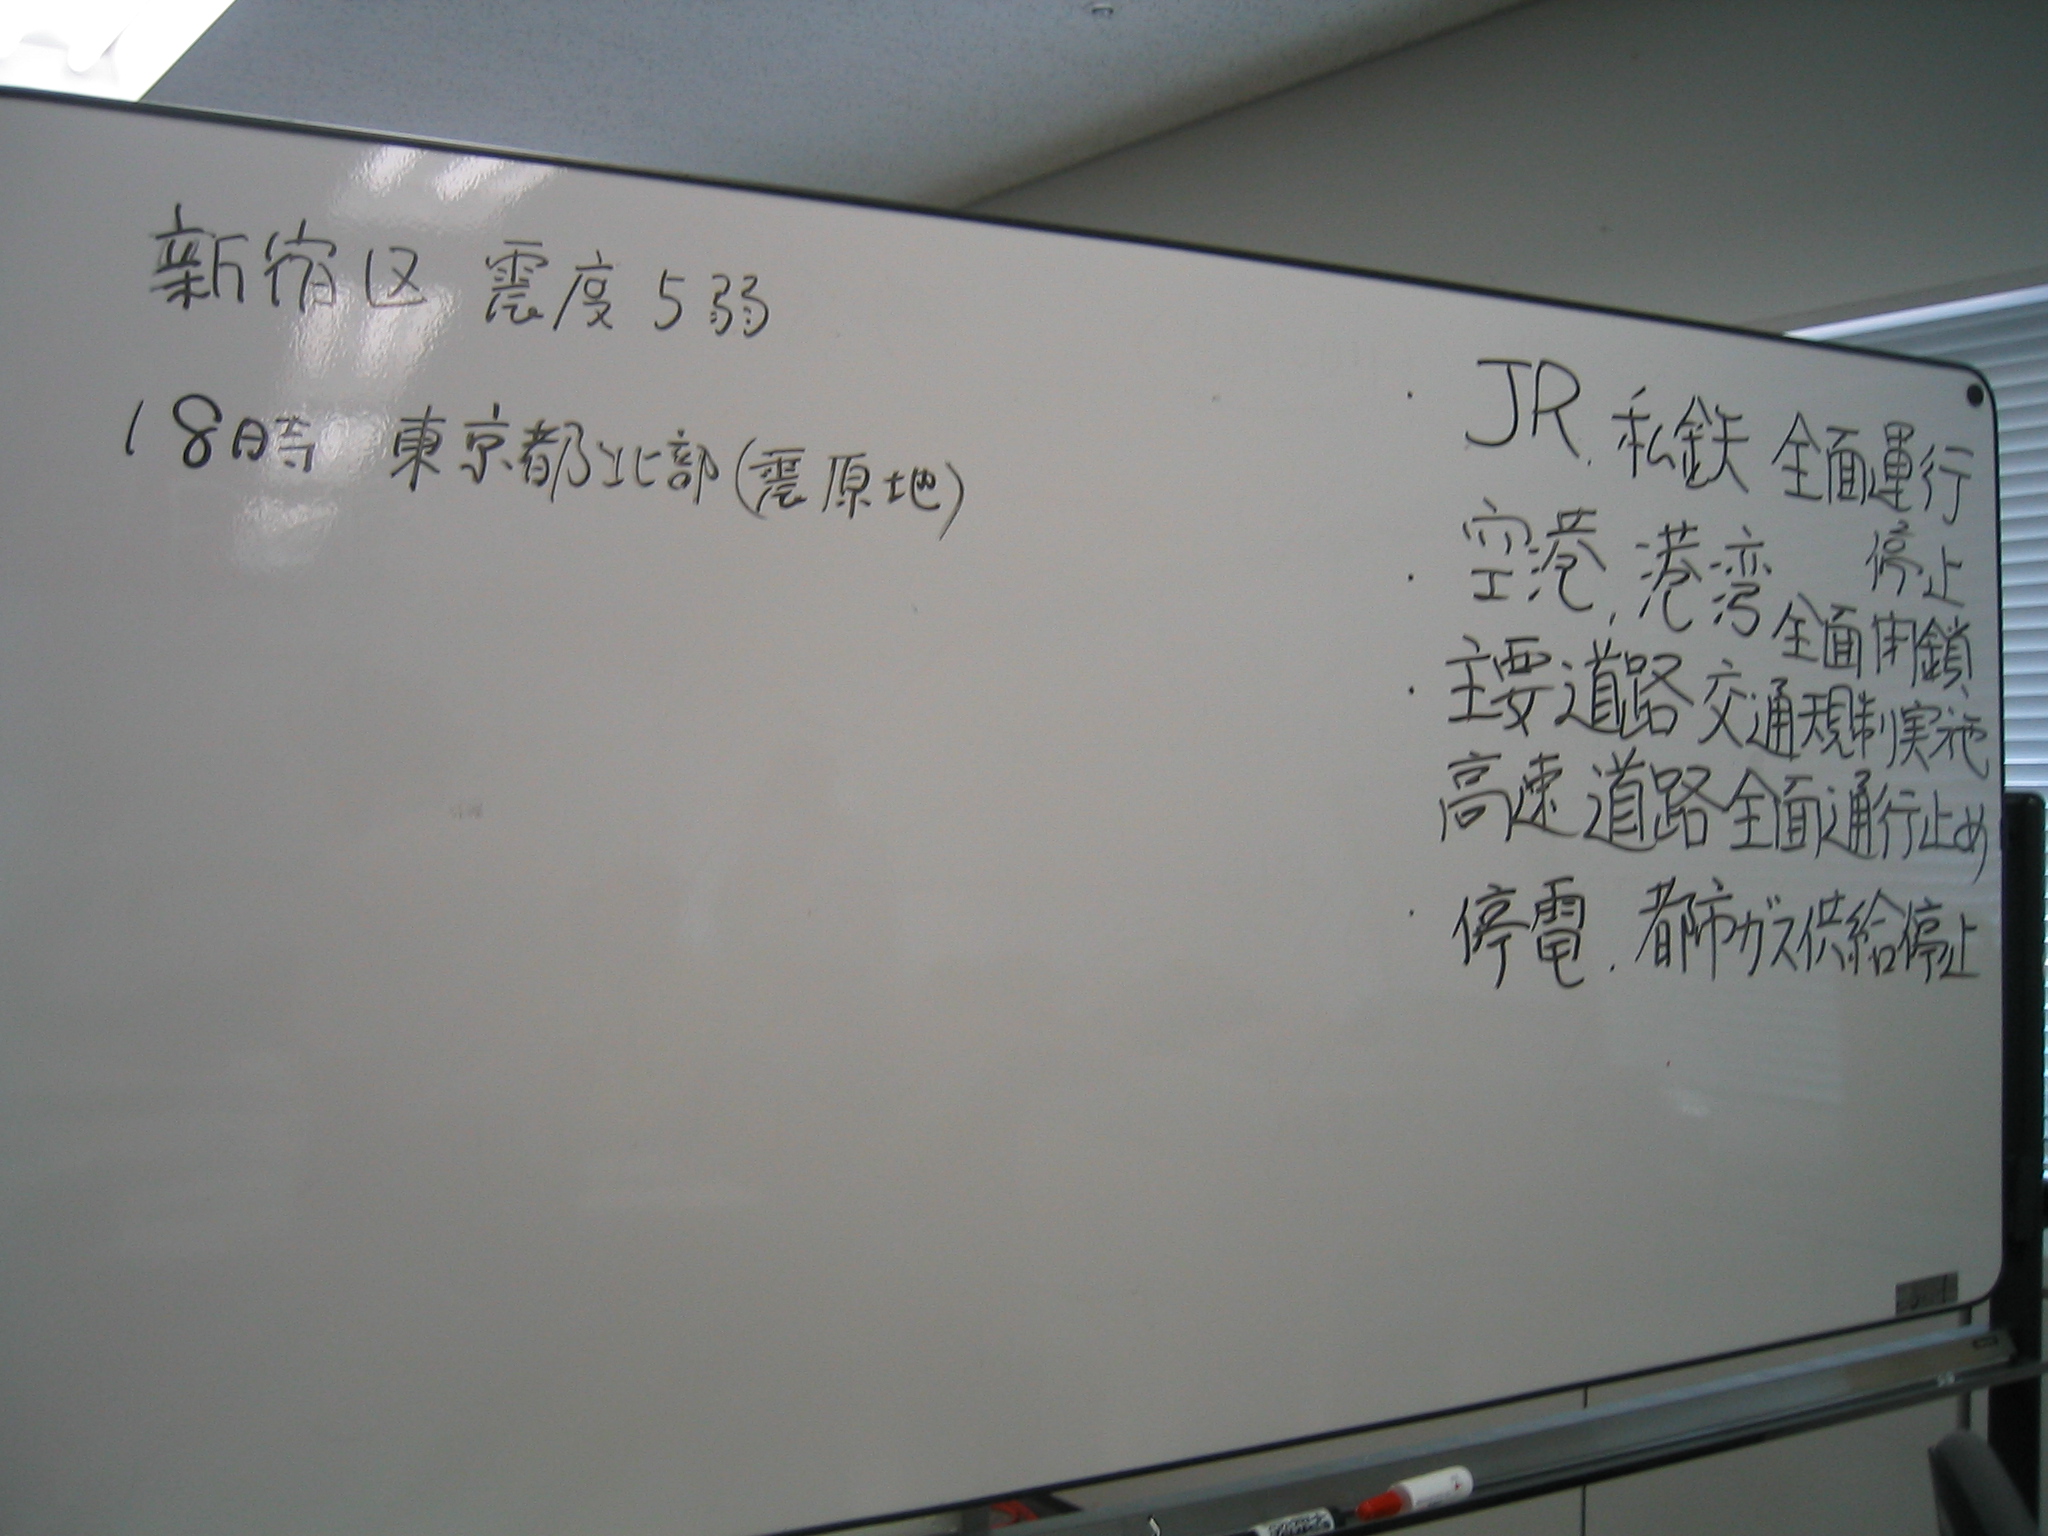 新宿区 震度5弱
18時 東京都北部(震原地)
・JR、私鉄 全面運行
停止
・空港、港湾 全面閉鎖
・主要道路交通規制実施
高速道路全面通行止め
・停電、都市ガス供給停止